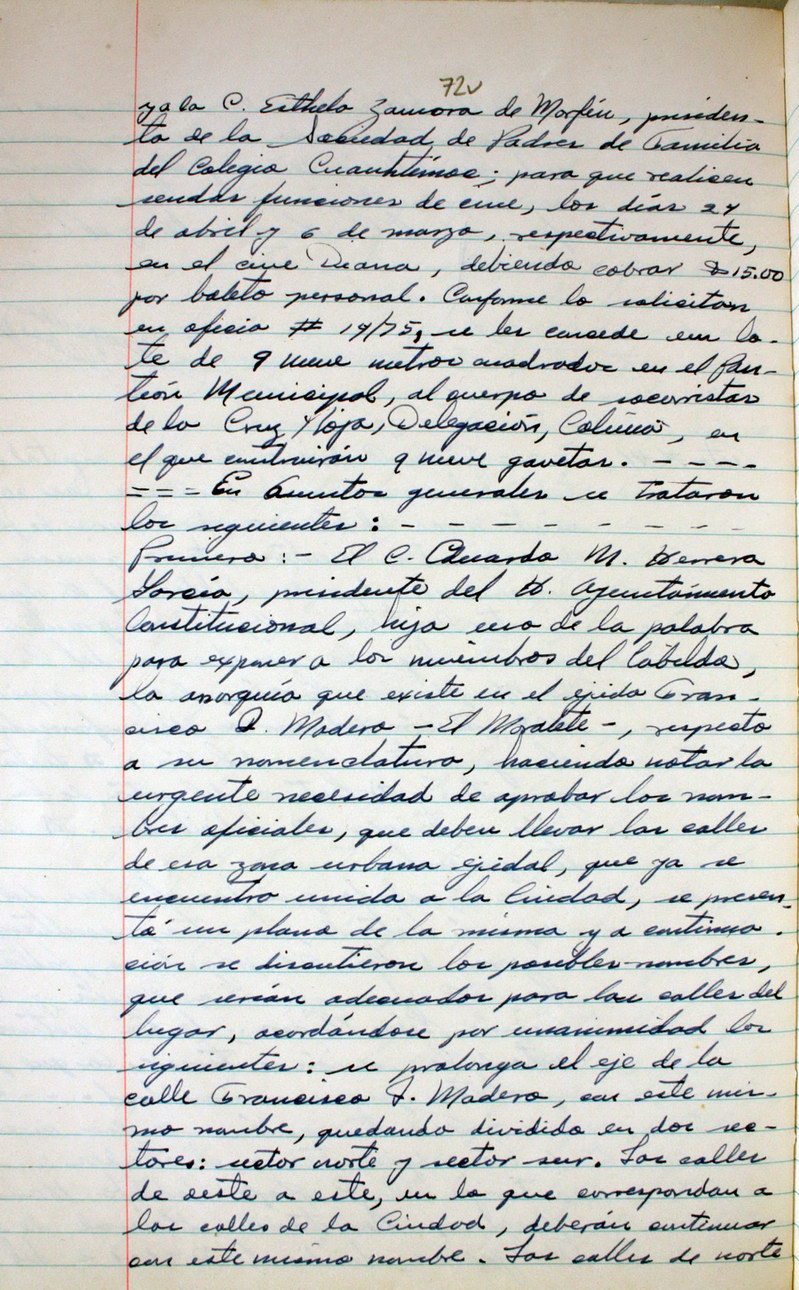 72v
y a la C. Esthela Zamora de Morfín, presiden-
ta de la Sociedad de Padres de Familia
del Colegio Cuauhtémoc; para que realicen
sendas funciones de cine, los días 24
de abril y 6 de marzo, respectivamente,
en el cine Diana, debiendo cobrar $15.00
por boleto personal. Conforme lo solicitan
en oficio # 14/75, se les concede un lo-
te de 9 nueve metros cuadrados en el Pan-
teón Municipal, al cuerpo de socorristas
de la Cruz Roja, Delegación, Colima, en
el que contruirán 9 nueve gavetas. - - - -
= = = En Asuntos generales se trataron
los siguientes: - - - - - - - - -
Primero:- El C. Eduardo M. Herrera
García, presidente del H. Ayuntamiento
Constitucional, hizo uso de la palabra
para exponer a los miembros del Cabildo,
la anarquía que existe en el ejido Fran-
cisco I. Madero -El Moralete-, respecto
a su nomenclatura, haciendo notar la
urgente necesidad de aprobar los nom-
bres oficiales, que deben llevar las calles
de esa zona urbana ejidal, que ya se
encuentra unida a la Ciudad, se presen-
tó un plano de la misma y a continua-
ción se discutieron los posibles nombres,
que serían adecuados para las calles del
lugar, acordándose por unanimidad los
siguientes: se prolonga el eje de la
calle Francisco I. Madero, con este mis-
mo nombre, quedando dividido en dos sec-
tores: sector norte y sector sur. Las calles
de oeste a este, en lo que correspondan a
las calles de la Ciudad, deberán continuar
con este mismo nombre. Las calles de norte